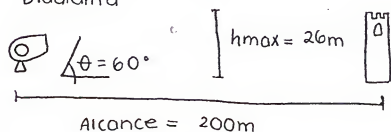 Diagrama
θ = 60°
hmax = 26m
Alcance = 200m